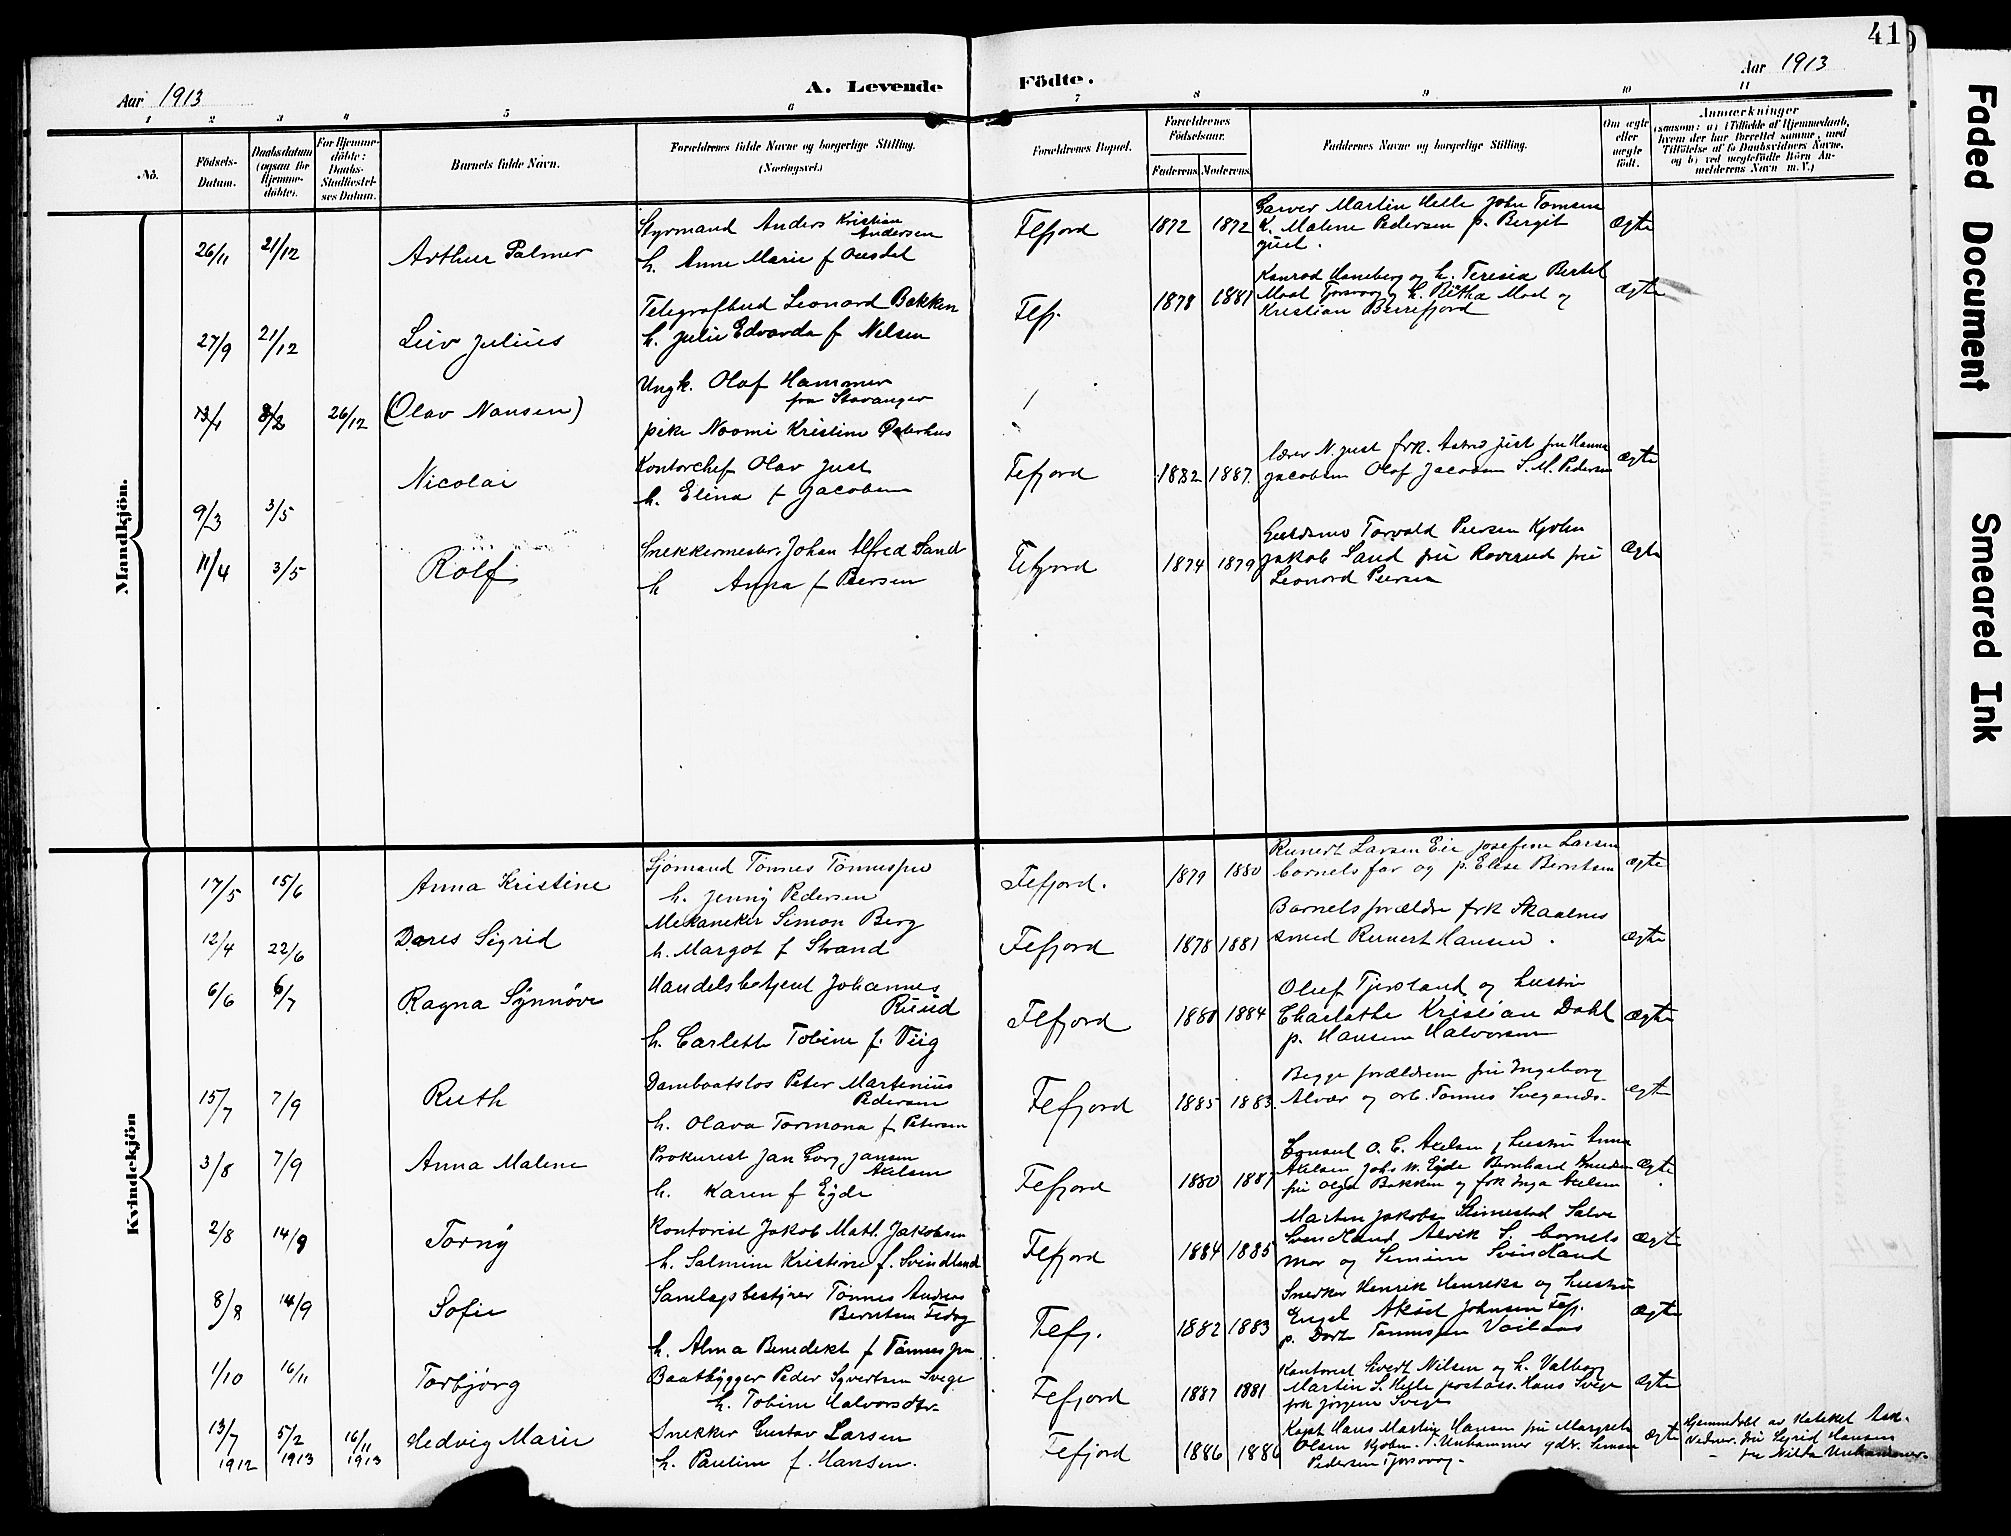 41
Aar 1913
A. Levende Födte.
Aar 1913
1 2 3 4 5 6 7 8 9 10 11
No.
Födsels-
Datum.
Daabsdatum
(ogsaa for
Hjemme-
döbte).
For Hjemme-
döbte:
Daabs-
Stadfæstel-
ses Datum.
Barnets fulde Navn.
Forældrenes fulde Navne og borgerlige Stilling.
(Næringsvei.)
Forældrenes Bopæl.
Forældrenes
Födselsaar.
Faderens. Moderens.
Faddernes Navne og borgerlige Stilling.
Om ægte
eller
uægte
födt.
Anmærkninger
(saasom: a) i Tilfælde af Hjemmedaab,
hvem der har forrettet samme, med
Tilföielse af to Daabsvidners Navne,
og b) ved uægtefödte Börn An-
melderens Navn m. V.)
Mandkjön.
26/11 21/12 Arthur Palmer
Styrmand Anders Kristian
Andersen
h. Anne Marie f Ousdal
Flefjord 1872 1872
Garver Martin Helle John Tomsen
K. Malene Pedersen p. Bergit
Juel.
ægte
27/9 21/12 Leiv Julius
Telegrafbud Leonard Bakken
h. Julie Edvarda f Nelsen
Flefj. 1878 1881
Konrad Haneberg og h. Teresia Bertel
Moal Tjorsvaag h. Moal og
Kristian
ægte
13/1 8/2 26/12 (Olav Nansen)
Ungk. Olaf Hammer
fra Stavanger
pike Noomi Kristine Østerhus
9/3 3/5 Nicolai
Kontorchef Olav Just
h. Elina f Jacobsen
Flefjord 1882 1887
lærer N. Just frk. Astrid Just fru Hanna
Jacobsen Olaf Jacobsen S. M. Pedersen
ægte
11/4 3/5 Rolf
Snekkermester Johan Alfred Sand
h Anna f Peersen
Flefjord 1874 1879
Guldsmed Torvald Peersen Kjøbm
Jakob Sand fru Roverud fru
Leonord Peersen
ægte
Kvindekjön
17/5 15/6 Anna Kristine
Sjömand Tönnes Tönnessen
h. Jenny Pedersen
Flefjord. 1879 1880
Reinert Larsen Eie Josefine Larsen
barnets far og p. Elise Berntsen
ægte
12/4 22/6 Dores Sigrid
Mekaneker Simon Berg
h. Margot f Strand
Flefjord 1878 1881
Barnets forældre frk Skaalnes
smed Reinert Hansen.
ægte
6/6 6/7 Ragna Synnöve
Handelsbetjent Johannes
Ruud
h. Carlette Tobine f. Viig
Flefjord 1880 1884
Oluf Tjersland og hustru
Charlothe Kristian Dahl
p. Hansine Halvorsen
ægte
15/7 7/9 Ruth
Dambaatslos Peter Martenius
Pedersen
h. Olava Tormona f Petersen
Flefjord 1885 1883.
Begge forældrene fru Ingeborg
Alvær og arb. Tönnes Svegends.
ægte
3/8 7/9 Anna Malene
Prokurist Jan Georg Jansen
Axelsen
h. Karen f Eyde
Flefjord 1880 1887
Konsul O. C. Axelsen, hustru Anna
Axelsen Johs W. Eyde Bernhard Knudsen
fru Olga Bakken og frk Inga Axelsen
ægte
2/8 14/9 Torny
Kontorist Jakob Math. Jakobsen
h. Salmine Kristine f. Svindland
Flefjord 1884 1885
Marten Jakobs Stimestad Salve
Svindland Alvik S. barnets
mor og Semine Svindland
ægte
8/8 14/9 Sofie
Samlagsbestyrer Tönnes Andreas
Berntsen
h. Alma Benedikt f Tönnessen
Flefj. 1882 1883
Snedker Henrik Henriks og hustru
Engel Aksel Johnsen Flefj.
p. Dort. Tönnessen
ægte
1/10 16/11 Torbjörg
Baatbygger Peder Syvertsen Svege
h. Tobine Halvorsdtr.
Flefjord 1887 1881
Kontorist Sivert Nilsen og h. Valborg
Martin S. Helle postass. Hans Svege
frk Jörgine Svege
ægte
13/7
1912
5/2
1913
16/11
1913
Hedvig Marie
Snekker Gustav Larsen
h. Pauline f. Hansen.
Flefjord 1886 1886
Kapt Hans Martin Hansen fru Margrete
Olsen Kjøbm. T. Unhammer gdr. Simon
Pedersen Tjorsvaag.
ægte
Hjemmedøbt av Kateket Ask.
Vidner. fru Sigrid Hansen
– fru Nilda Unhammer.
Faded Document
Smeared Ink